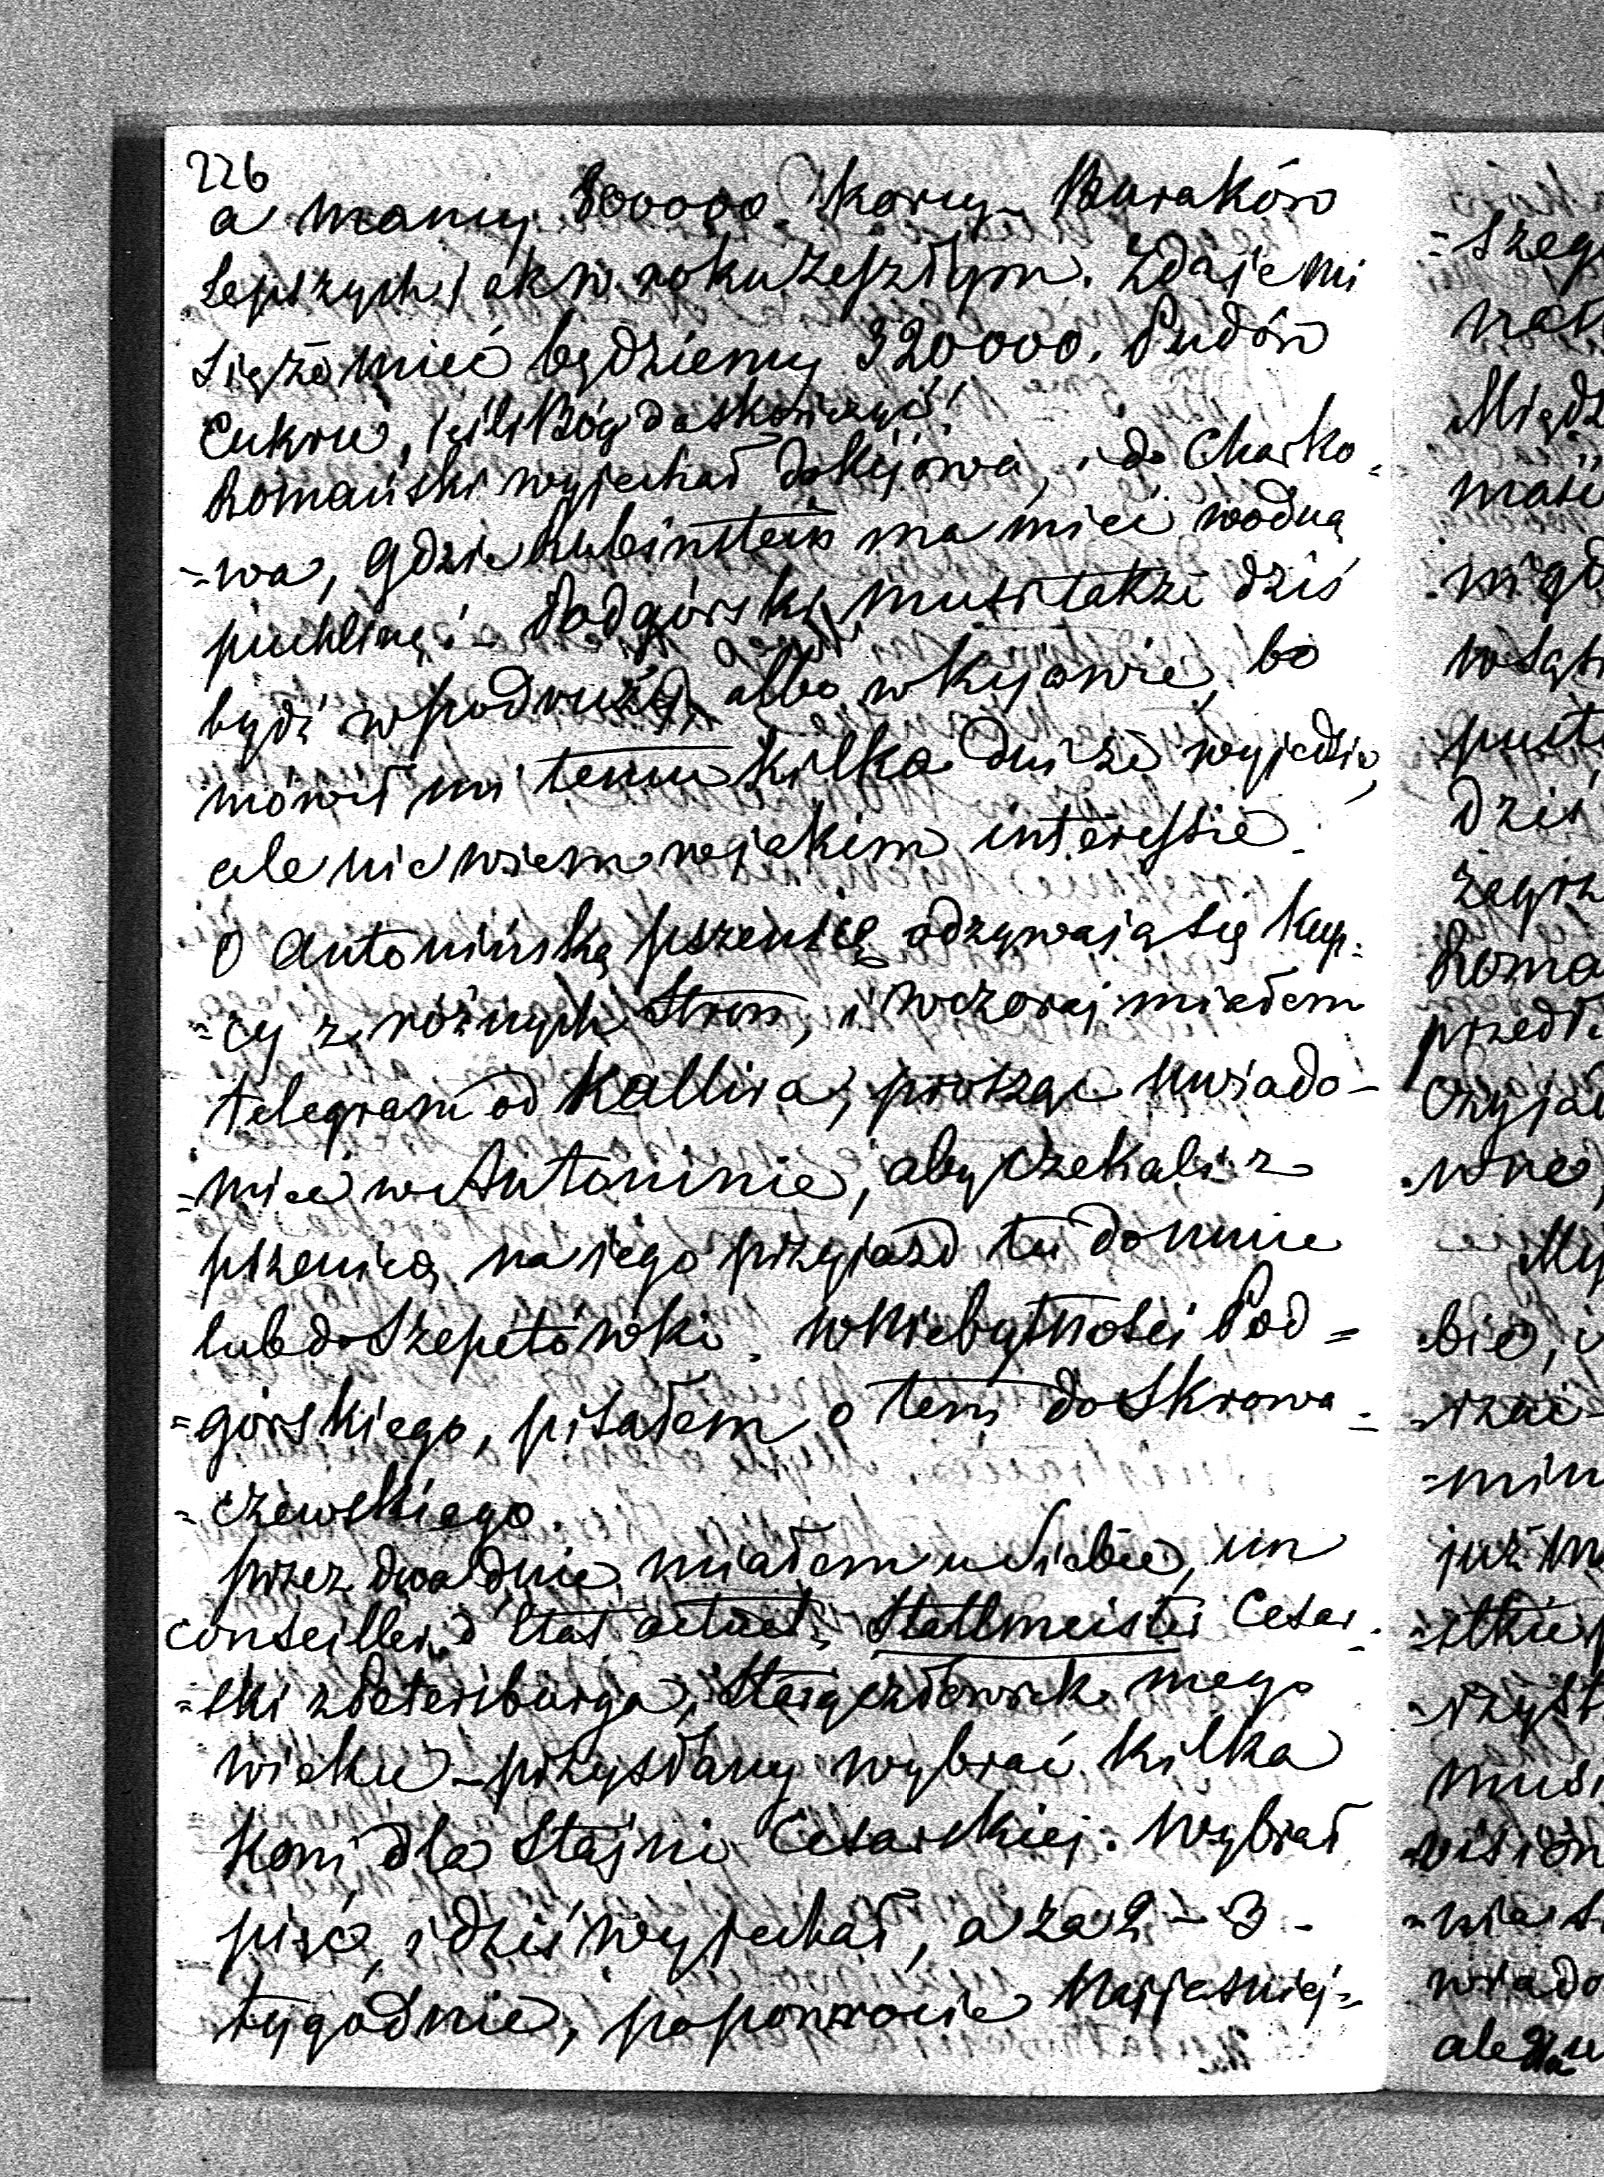 226
a mamy 800000. korcy - Buraków
lepszych jak w roku zeszłym. Zdaje mi
się że mieć będziemy 320000. Pudów
Cukru, jeśli Bóg da skończyć!
Romański wyjechał do Kijowa, i do Charko=
=wa, gdzie Rubinstein ma mieć wodną
puchlinę! - Podgórski musi także dziś
bydź w podróży, albo w Kijowie, bo
mówił mi temu kilka dni że wyjedzie,
ale nie wiem w jakim interessie.
O Antonińską pszenicę odzywają się Kup=
=cy z różnych stron, i wczoraj miałem
telegram od Kallira, prosząc uwiado-
=mić w Antoninie, aby czekali z
pszenicą na jego przyjazd tu do mnie
lub do Szepetówki. W niebytności Pod=
=górskiego, pisałem o tem do Skrowa=
=czewskiego.
przez dwa dnie miałem u siebie, un
conseiller d'Etat actuel, Stallmeister Cesar=
=ski z Petersburga, Starą człowiek mego
wieku - przysłany wybrać kilka
Koni dla Stajni Cesarskiej. Wybrał
pięć, i dziś wyjechał, a za 2 - 3 -
tygodnie, po powrocie Najjaśniej=
=szeg
Międz
nigd
wsąt
dziś
Roma
przedł
=bie, i
=rzai
już
=rzyst
wiado